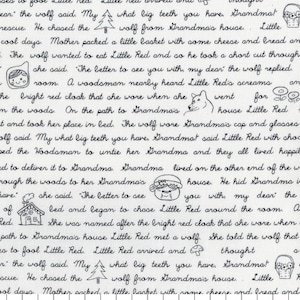 esser" the wolf said. Little Red arrived and thought
dear" the wolf said. My what big teeth you have, Grandma!
rescue. He chased the wolf from Grandma's house. Little
cool days. Mother packed a little basket with some cheese and bread an
olf. The wolf wanted to eat Little Red and so he took a short cut through
she said. "The better to see you with, my dear" the wolf replied
room. A woodsman nearby heard Little Red's screams an
the bright red cloak that she wore when she went for
on the woods. On the path to Grandma's house Little Red
t and took her place in bed. The wolf wore Grandma's cap and glasses
olf said. My what big teeth you have, Grandma! said Little Red with shoc
ed the Woodsman to unite her Grandma and they all lived happil
d to deliver it to Grandma. Grandma lived on the other end of the w
rough the woods to her Grandma's house. He hid Grandma i
have!" she said. "The better to see you with my dear" the
of bed and began to chase Little Red around the room. A
She was named after the bright red cloak that she wore when
path to Grandma's house Little Red met a wolf. She told the wolf tha
es to fool Little Red. Little Red arrived and thought
ar" the wolf said. My what big teeth you have, Grandma!
scue. He chased the wolf from Grandma's house. Little
cool days. Mother packed a little basket with some cheese and bread an